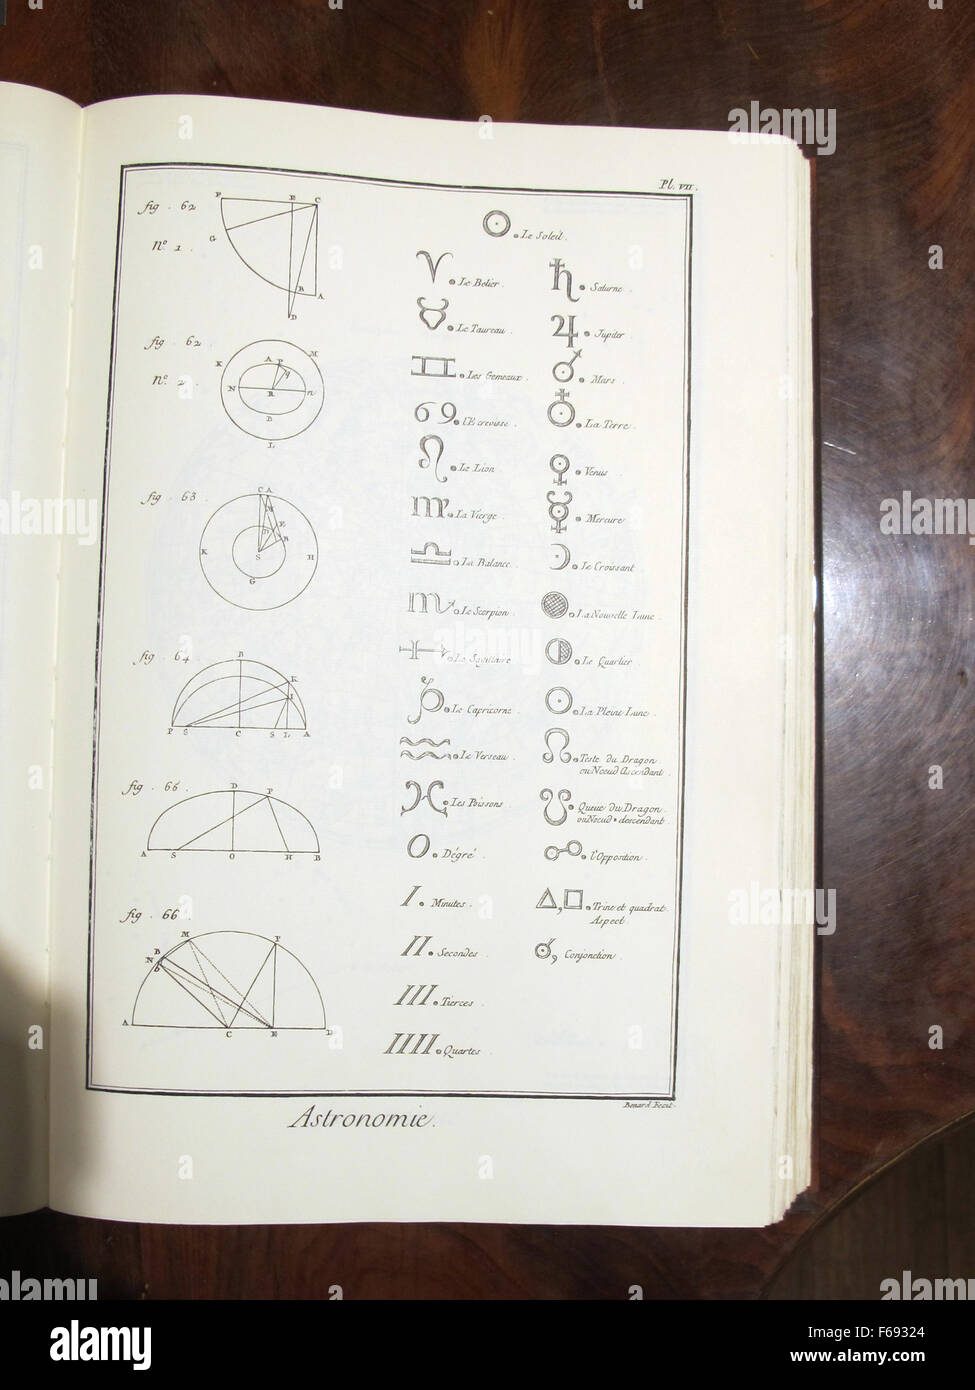 Pl. VII.
fig. 62
N.° 1.
P E C
G
B A
D
fig. 62
N.° 2.
K A P M
N R n
B
L
fig. 63
C A
M
E
D B
K S H
G
fig. 64
B
K
I
P S C S L A
fig. 66
D P
A S O H B
fig. 66
M P
B
N b
A C E D
Le Soleil.
Le Belier.
Le Taureau.
Les Gemeaux.
69
l'Ecrevisse.
Le Lion
La Vierge.
La Balance.
Le Scorpion.
Le Sagittaire
Le Capricorne
Le Verseau.
Les Poissons
0. Dégré.
I. Minutes.
II. Secondes
III. Tierces.
IIII. Quartes
Saturne.
Jupiter.
Mars.
La Terre.
Venus.
Mercure
Le Croissant
La Nouvelle Lune.
Le Quartier
La Pleine Lune.
Teste du Dragon
ou Noeud Ascendant.
Queue du Dragon.
ou Noeud descendant.
l'Opposition.
Trine et quadrat
Aspect.
Conjonction.
Benard Fecit.
Astronomie.
alamy
Image ID: F69324
www.alamy.com